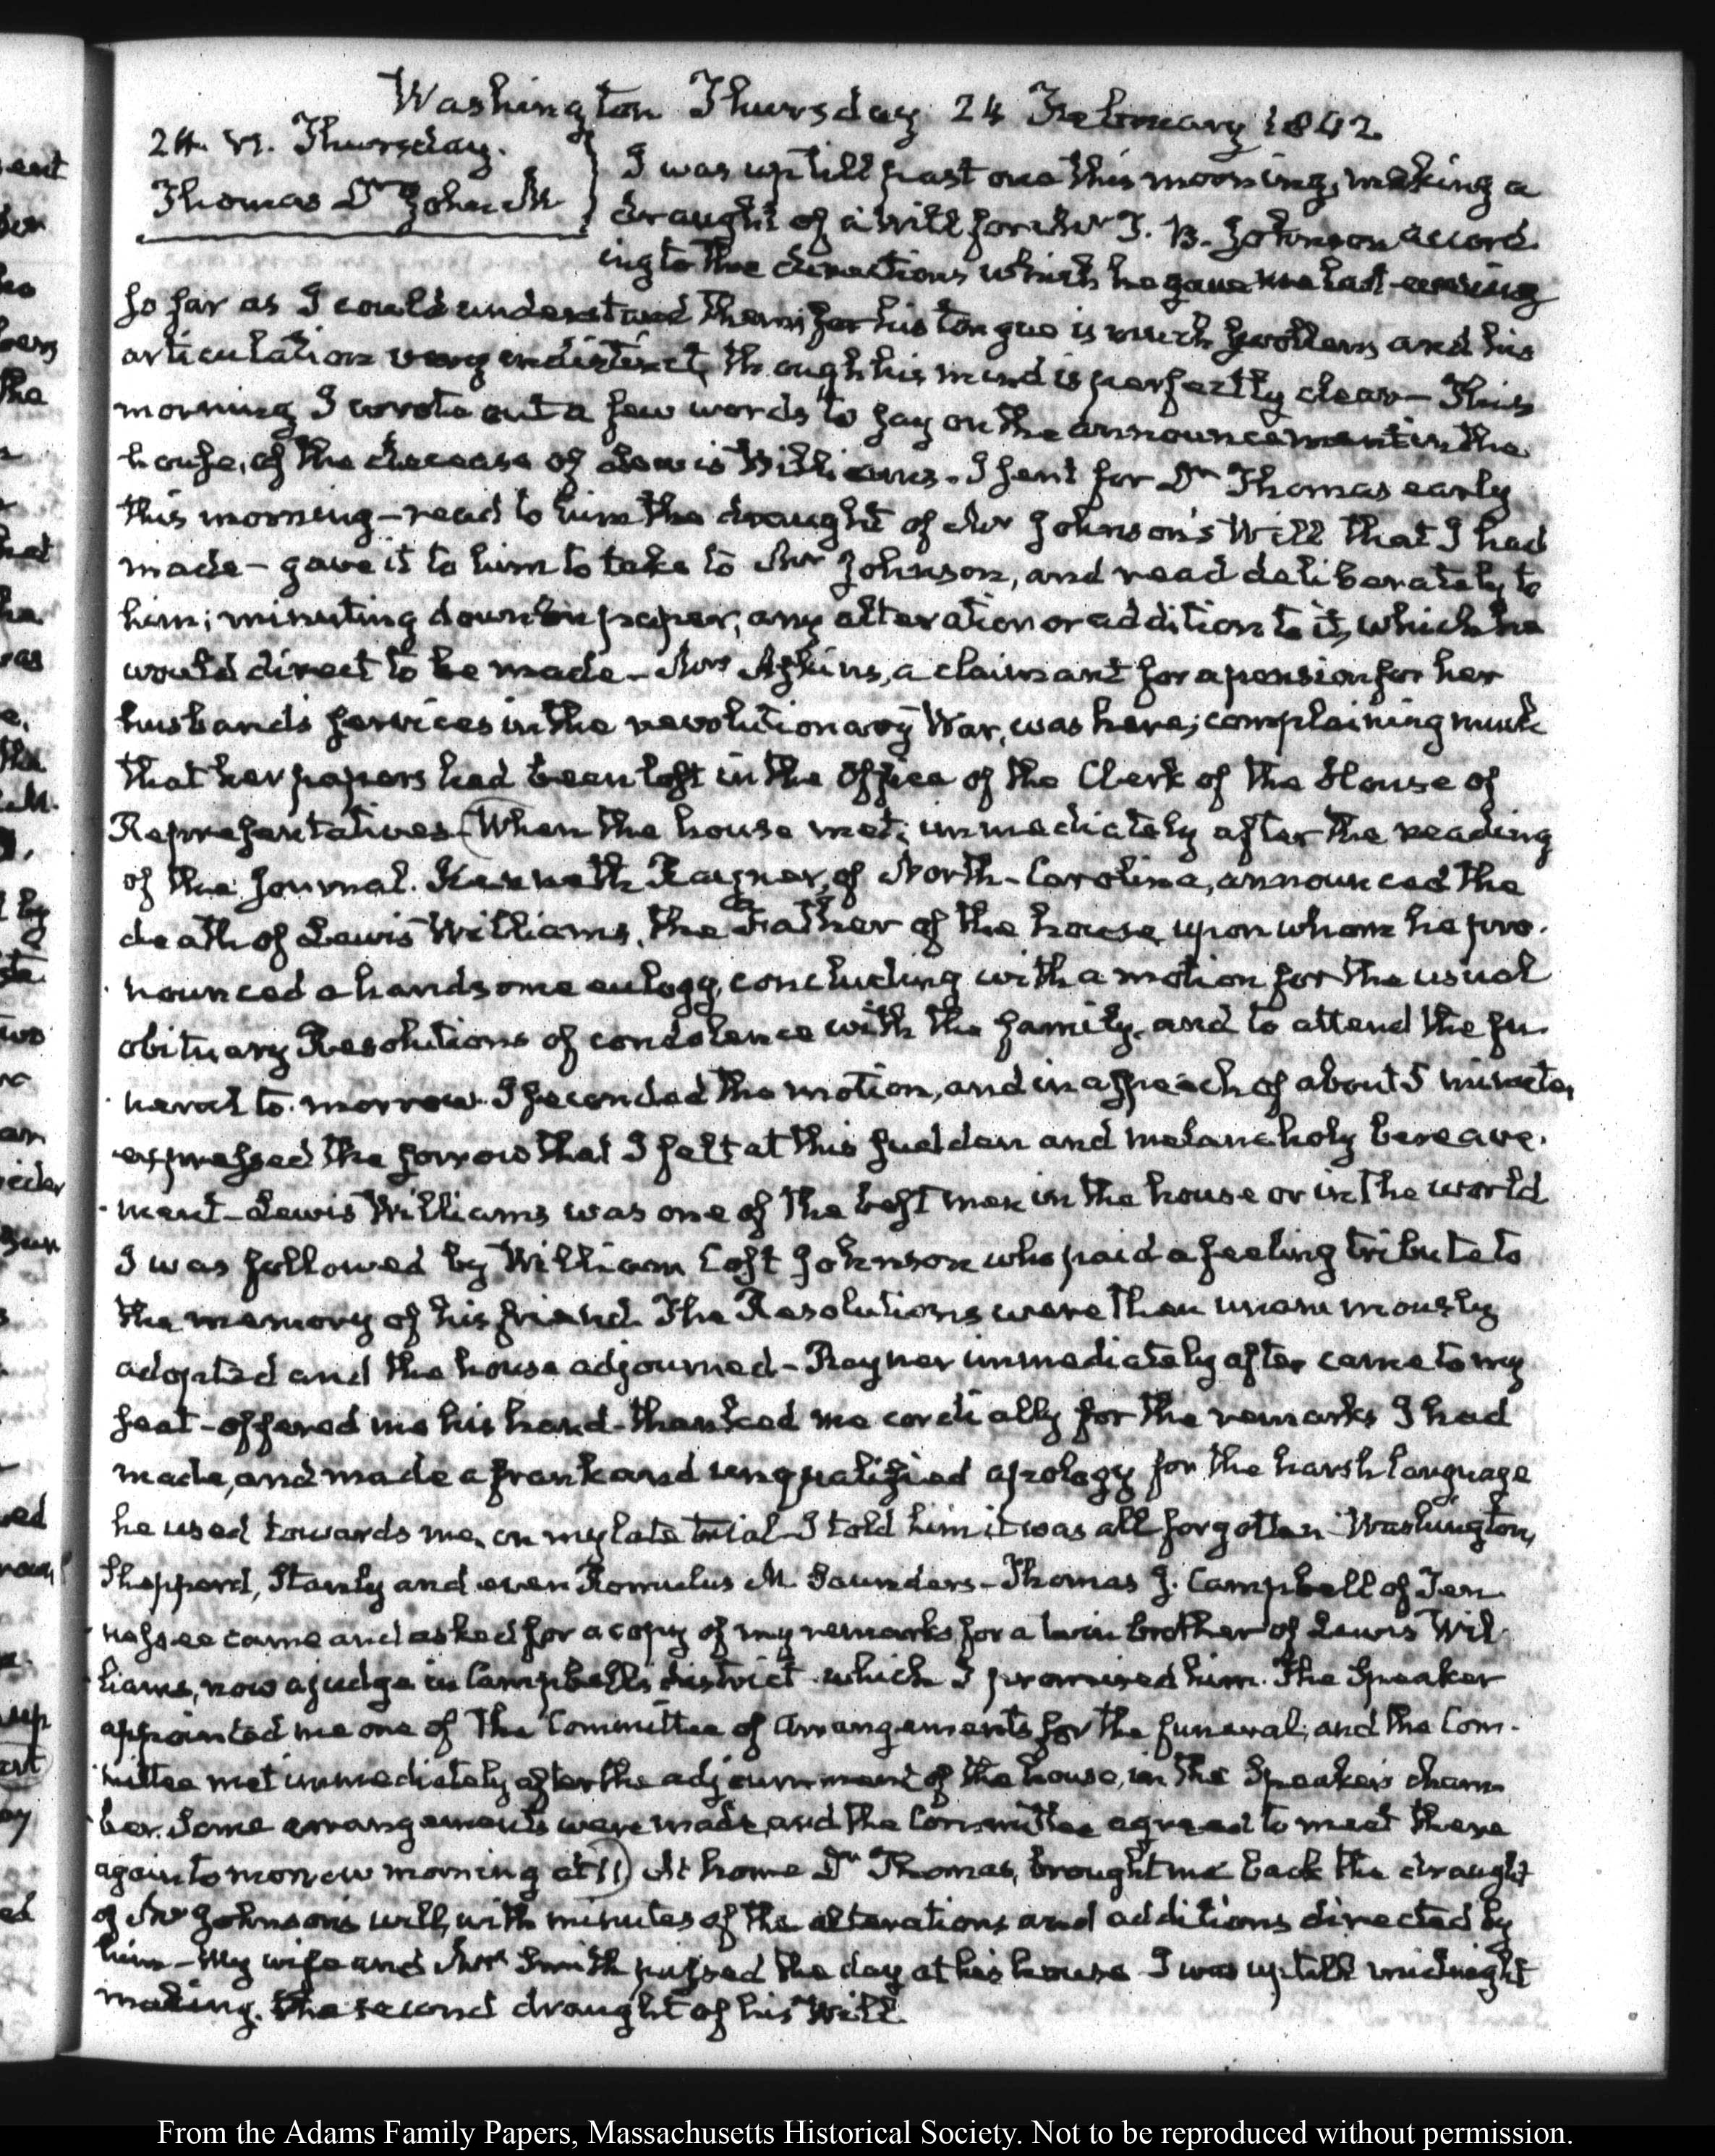 Washington Thursday 24 February 1842.
24. VI. Thursday.
Thomas Dr John M
I was up till past one this morning, making a
draught of a Will for Mr T. B. Johnson accord
ing to the directions which he gave me last evening
so far as I could understand them; for his tongue is much swollen and his
articulation very indistinct, though his mind is perfectly clear — This
morning I wrote out a few words to say on the announcement in the
house, of the decease of Lewis Williams. I sent for Dr Thomas early
this morning — read to him the draught of Mr Johnson's Will that I had
made — gave it to him to take to Mr Johnson, and read deliberately to
him; minuting down on paper, any alteration or addition to it, which he
would direct to be made — Mrs Askins, a claimant for a pension for her
husband's services in the revolutionary War, was here; complaining much
that her papers had been lost in the Office of the Clerk of the House of
Representatives — (When the house met, immediately after the reading
of the Journal. Kenneth Rayner, of North-Carolina, announced the
death of Lewis Williams, the Father of the house, upon whom he pro-
nounced a handsome eulogy, concluding with a motion for the usual
obituary Resolutions of condolence with the family, and to attend the fu-
neral to-morrow. I seconded the motion, and in a speech of about 5 minutes,
expressed the sorrow that I felt at this sudden and melancholy bereave-
ment — Lewis Williams was one of the best men in the house or in the world
I was followed by William Cost Johnson who paid a feeling tribute to
the memory of his friend. The Resolutions were then unanimously
adopted and the house adjourned — Rayner immediately after came to my
seat — offered me his hand — thanked me cordially for the remarks I had
made, and made a frank and unqualified apology for the harsh language
he used towards me, on my late trial — I told him it was all forgotten. Washington,
Sheppard, Stanly and even Romulus M. Saunders — Thomas J. Campbell of Ten-
nessee came and asked for a copy of my remarks for a twin brother of Lewis Wil-
liams, now a judge in Campbell's district which I promised him. The Speaker
appointed me one of the Committee of Arrangements for the funeral, and the Com-
mittee met immediately after the adjournment of the house, in the Speaker's cham-
ber. Some arrangements were made, and the Committee agreed to meet there
again to morrow morning at 11) At home Dr Thomas, brought me back the draught
of Mr Johnson's will, with minutes of the alterations and additions directed by
him — My wife and Mrs Smith passed the day at his house I was up till midnight
making the second draught of his Will.
From the Adams Family Papers, Massachusetts Historical Society. Not to be reproduced without permission.